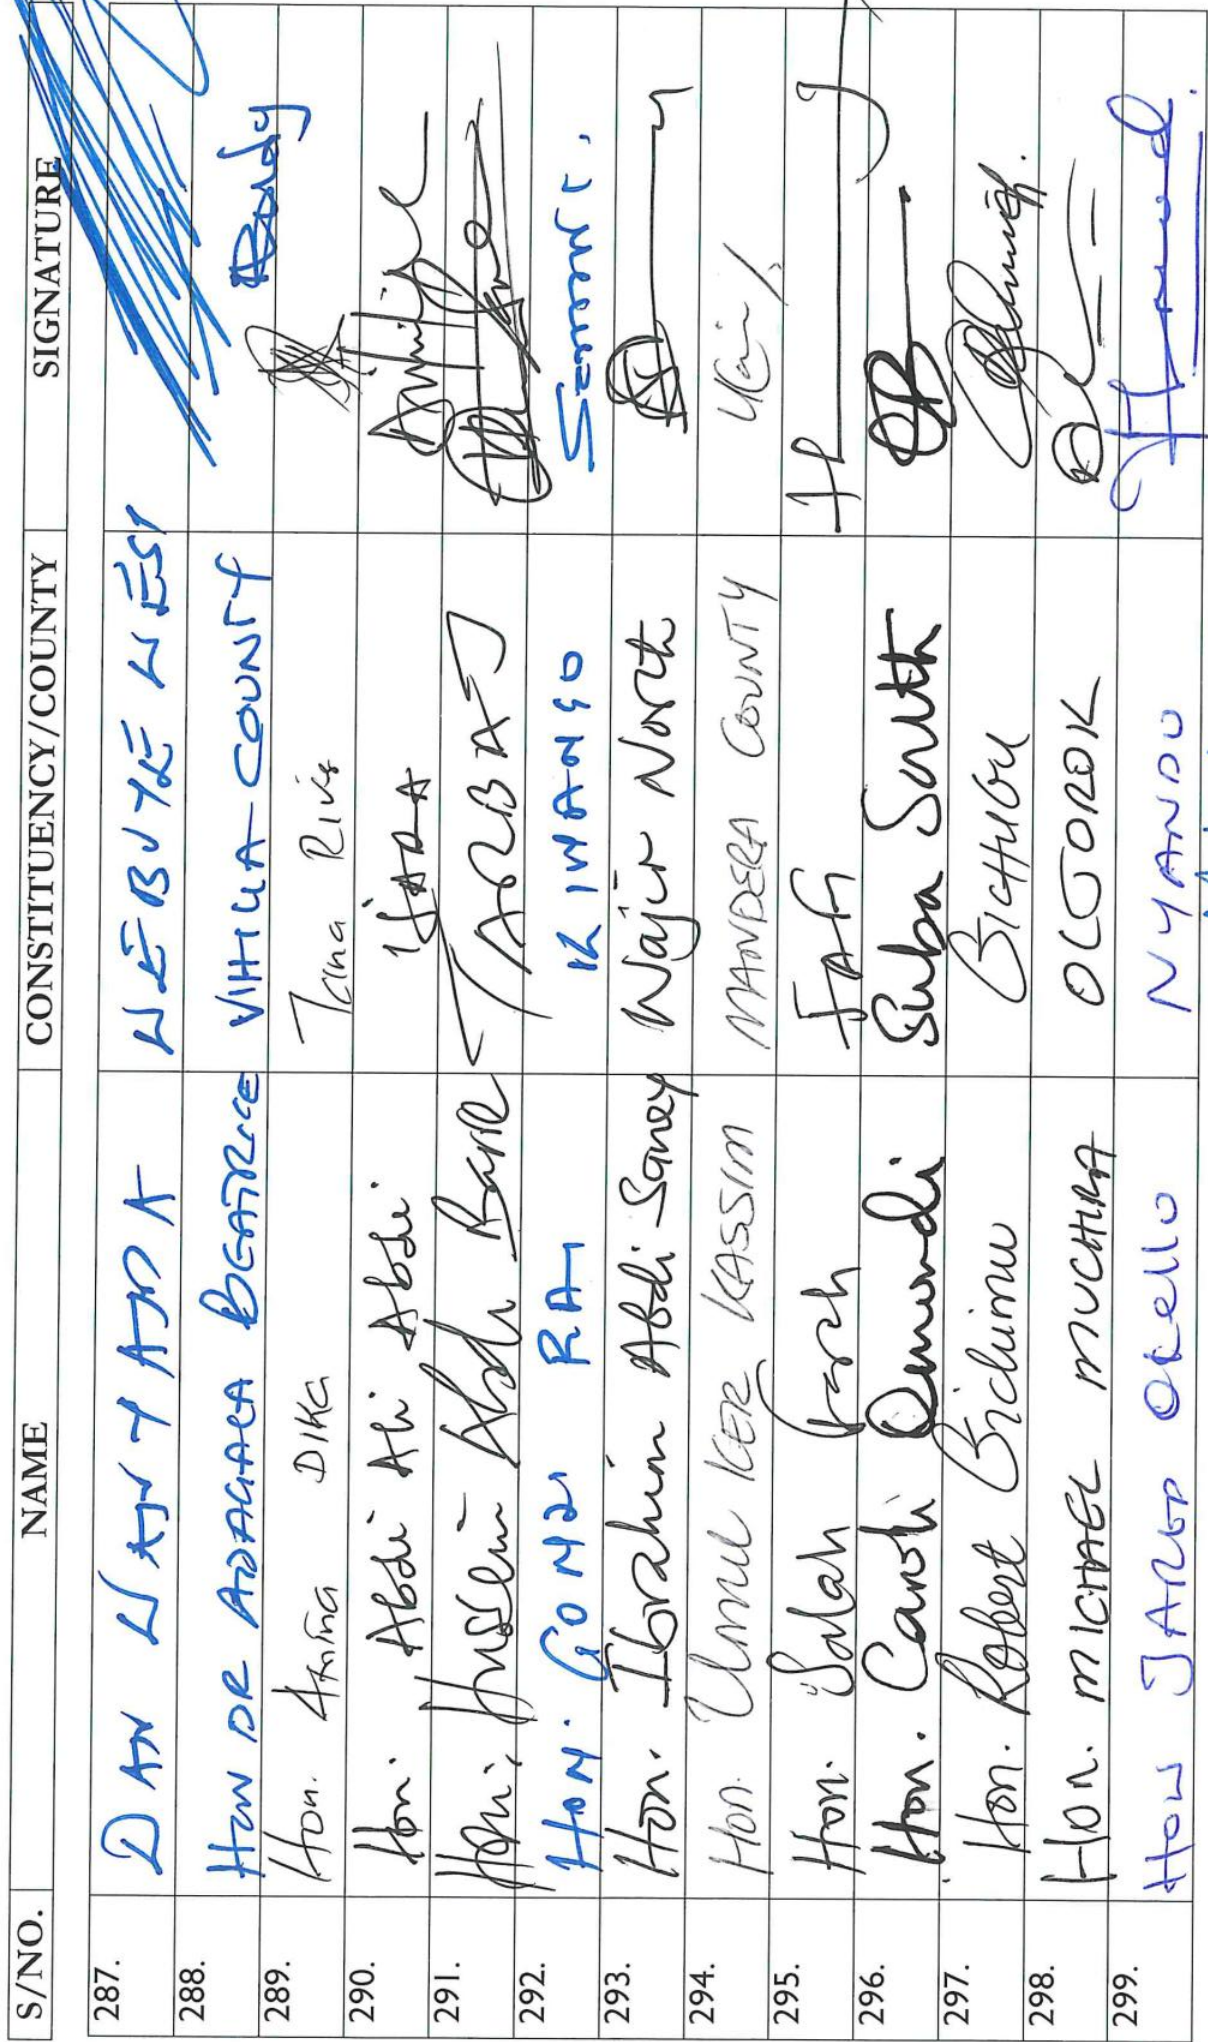 S/NO. NAME CONSTITUENCY/COUNTY SIGNATURE
287. DAN WANYAMA WEBUYE WEST
288. HON DR ADAGALA BEATRICE VIHIGA-COUNTY
289. Hon. Amina DIKA Tana River
290. Hon. Abdi Ali Abdi IJARA
291. Hon. Hussein Abdi Barre TARBAJ
292. HON. GONZI RAI KINANGO
293. Hon. Ibrahim Abdi Saney Wajir North
294. Hon. Umul KER KASSIM MANDERA COUNTY
295. Hon. Salah Yarsh FAFI
296. Hon. Caroli Omondi Suba South
297. Hon. Robert Gichimu GICHUGU
298. HON. MICHAEL MUCHIRA OLJOROK
299. HON JARED OKELLO NYANDO